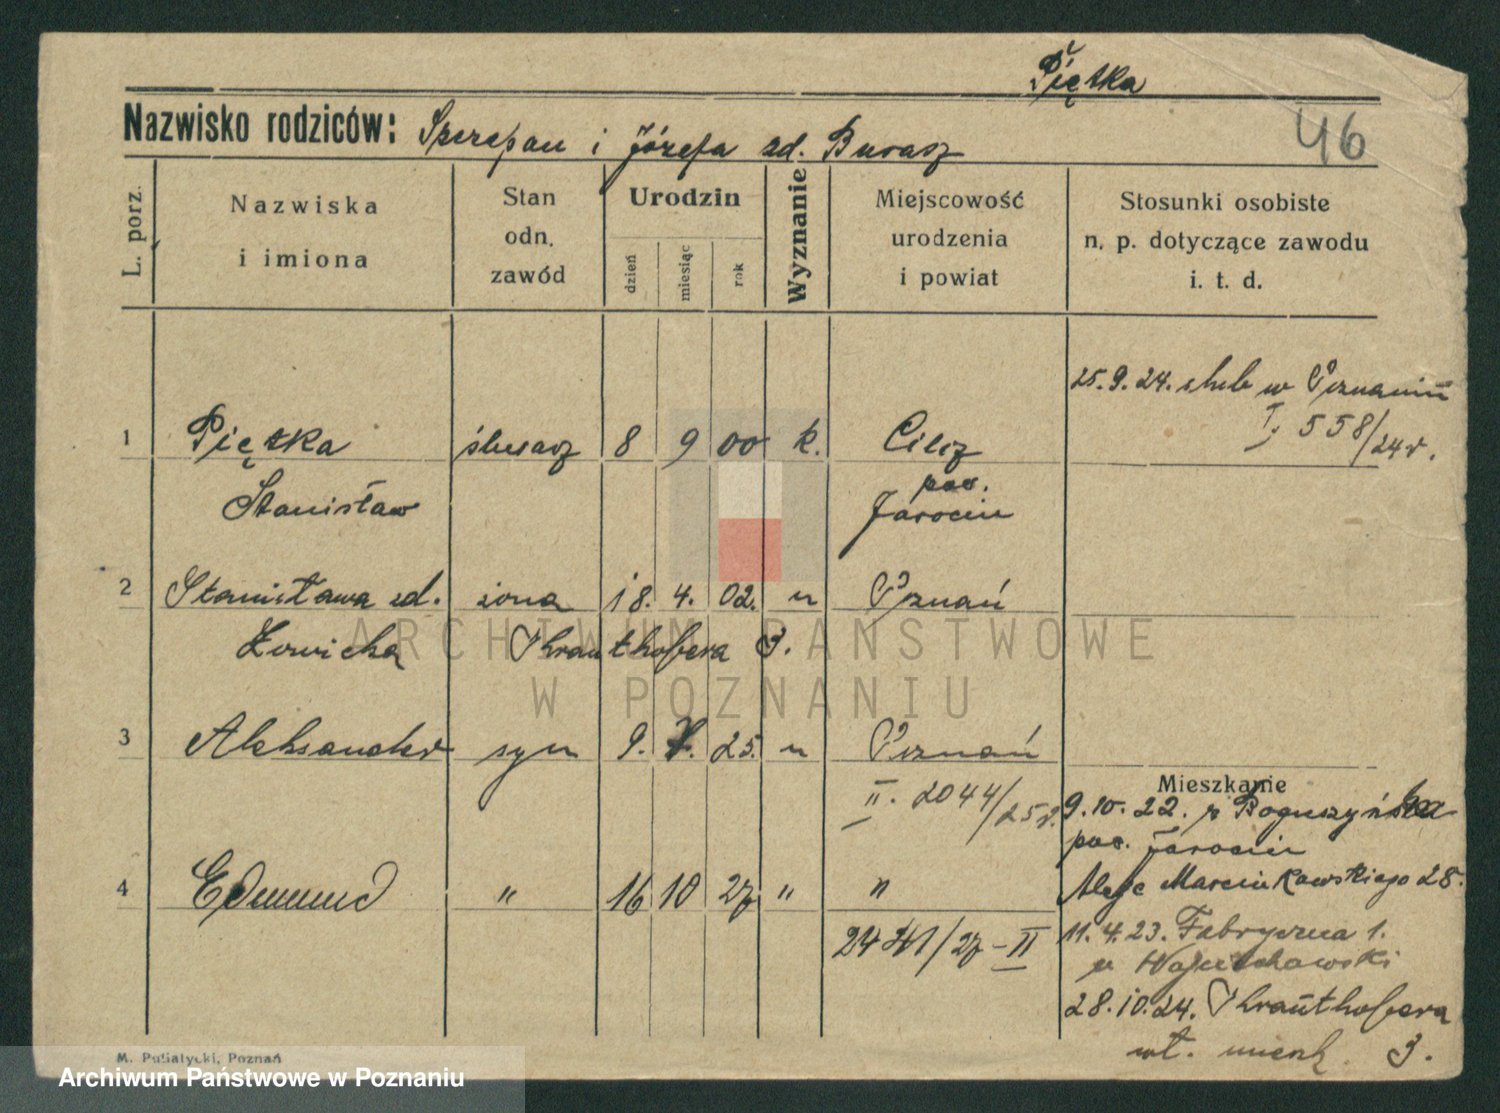 Piętka
Nazwisko rodziców: Szczepan i Józefa zd. Burasz
46
L. porz.
Nazwiska
i imiona
Stan
odn.
zawód
Urodzin
dzień
miesiąc
rok
Wyznanie
Miejscowość
urodzenia
i powiat
Stosunki osobiste
n. p. dotyczące zawodu
i. t. d.
25.9.24. ślub w Poznaniu
I, 558/24r.
1 Piętka ślusarz 8 9 00 k.
Stanisław
pow.
Jarocin
2 Stanisława zd. żona 18. 4. 02. " Poznań
3.
3 Aleksander syn 9. 25. " Poznań
II. 2044/25r.
4 Edmund " 16 10 27 " "
2441/27-II
Mieszkanie
9.10.22. z
pow. Jarocin
Aleje Marcinkowskiego 28.
11.4.23. Fabryczna 1.
u Wojciechowski
28.10.24.
wł. mieszk. 3.
M. Putiatycki, Poznań
ARCHIWUM PAŃSTWOWE
W POZNANIU
Archiwum Państwowe w Poznaniu